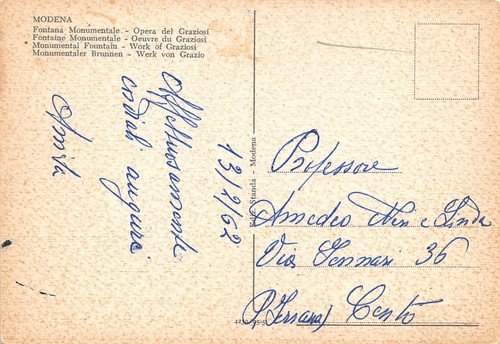 MODENA
Fontana Monumentale - Opera del Graziosi
Fontaine Monumentale - Oeuvre du Graziosi
Monumental Fountain - Work of Graziosi
Monumentaler Brunnen - Werk von Grazio
13/2/62
Affettuosamente
cordiali auguri
Standa - Modena
Professore
Amedeo e Linda
Via 36
Cento